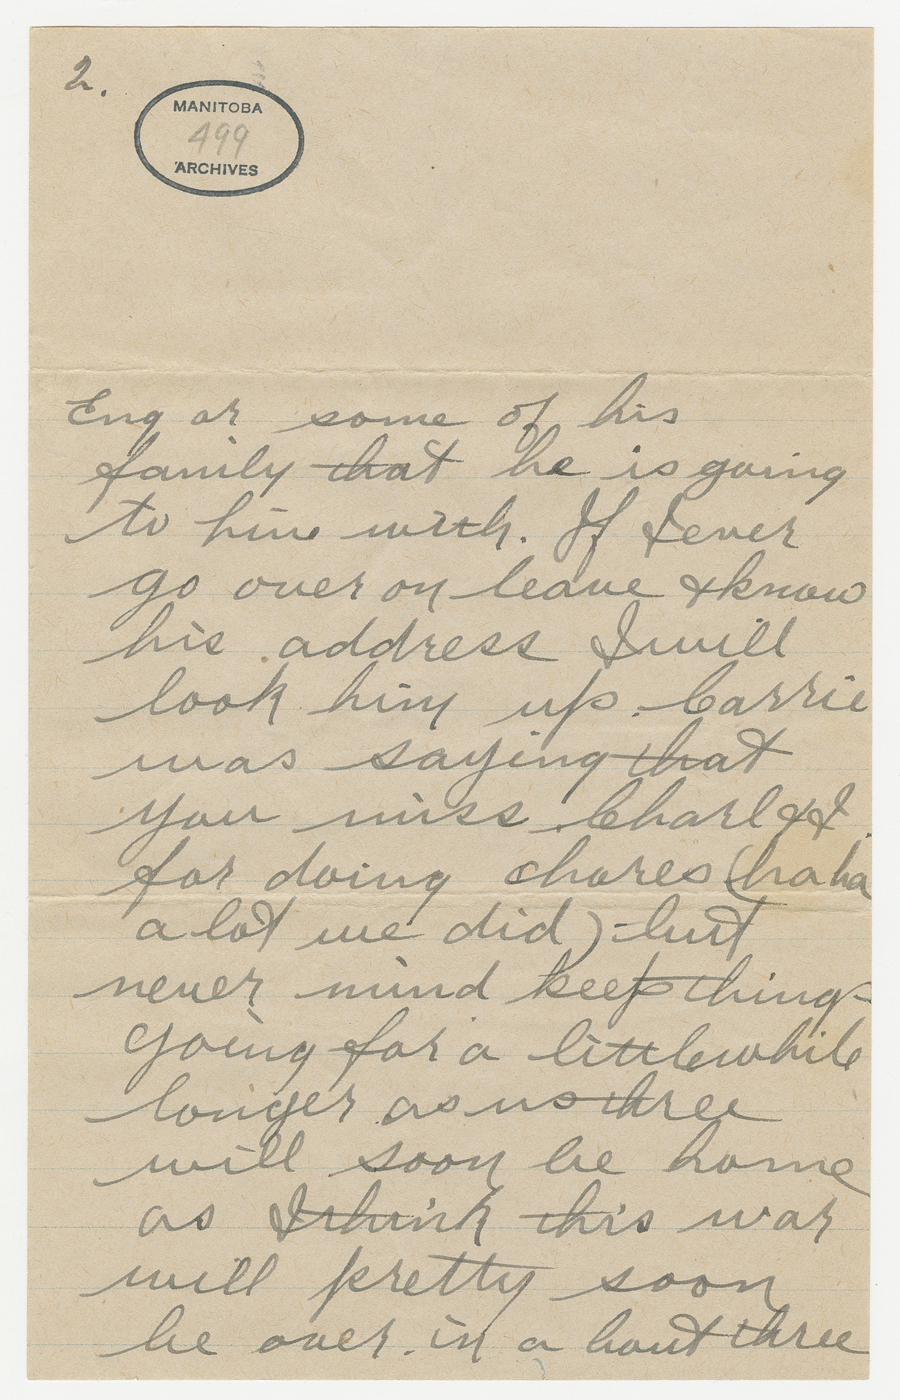 2.
MANITOBA
499
ARCHIVES
Eng or some of his
family that he is going
to him with. If I ever
go over on leave & know
his address I will
look him up. Carrie
was saying that
you miss Charl & I
for doing chores (haha
a lot we did) but
never mind keep things
going for a little while
longer as us three
will soon be home
as I think this war
will pretty soon
be over in a bout three